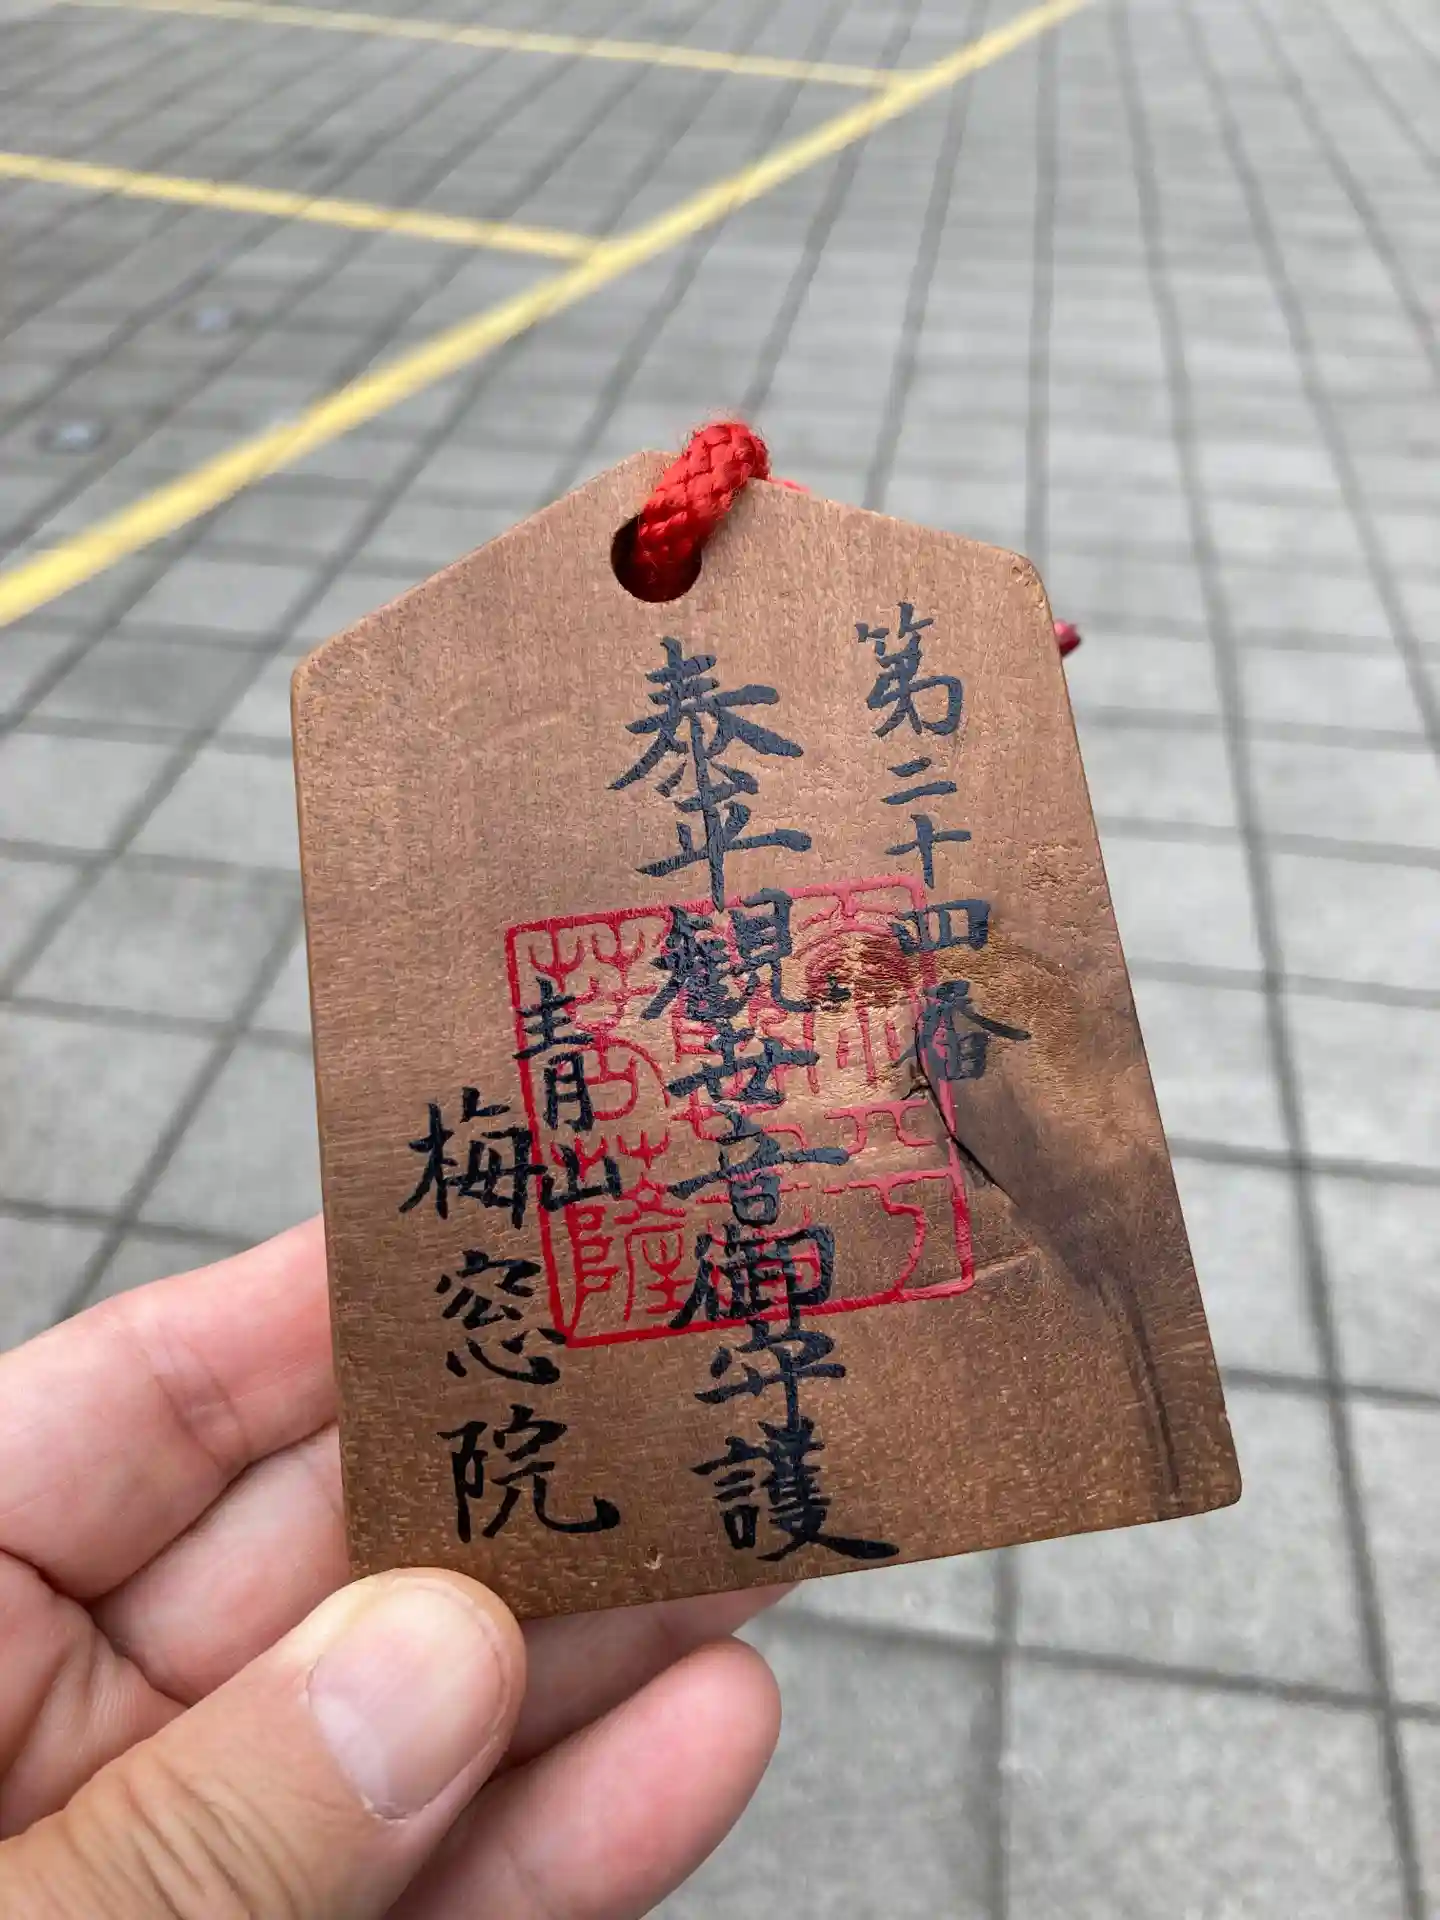 第二十四番
泰平観世音御守護
青山
梅窓院